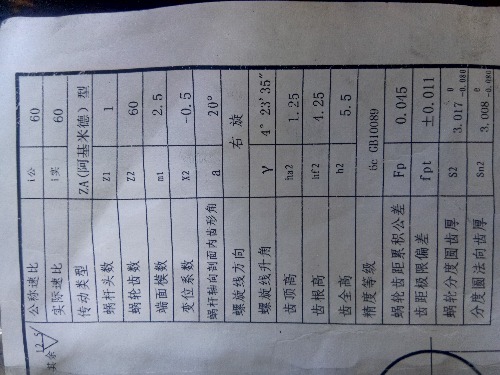 其余 12.5
公称速比 i公 60
实际速比 i实 60
传动类型 ZA(阿基米德)型
蜗杆头数 Z1 1
蜗轮齿数 Z2 60
端面模数 m1 2.5
变位系数 X2 -0.5
蜗杆轴向剖面内齿形角 a 20°
螺旋线方向 右旋
螺旋线升角 γ 4°23′35″
齿顶高 ha2 1.25
齿根高 hf2 4.25
齿全高 h2 5.5
精度等级 GB10089
蜗轮齿距累积公差 Fp 0.045
齿距极限偏差 fpt ±0.011
蜗轮分度圆齿厚 S2 3.017 0 -0.080
分度圆法向齿厚 Sn2 3.008 -0.080